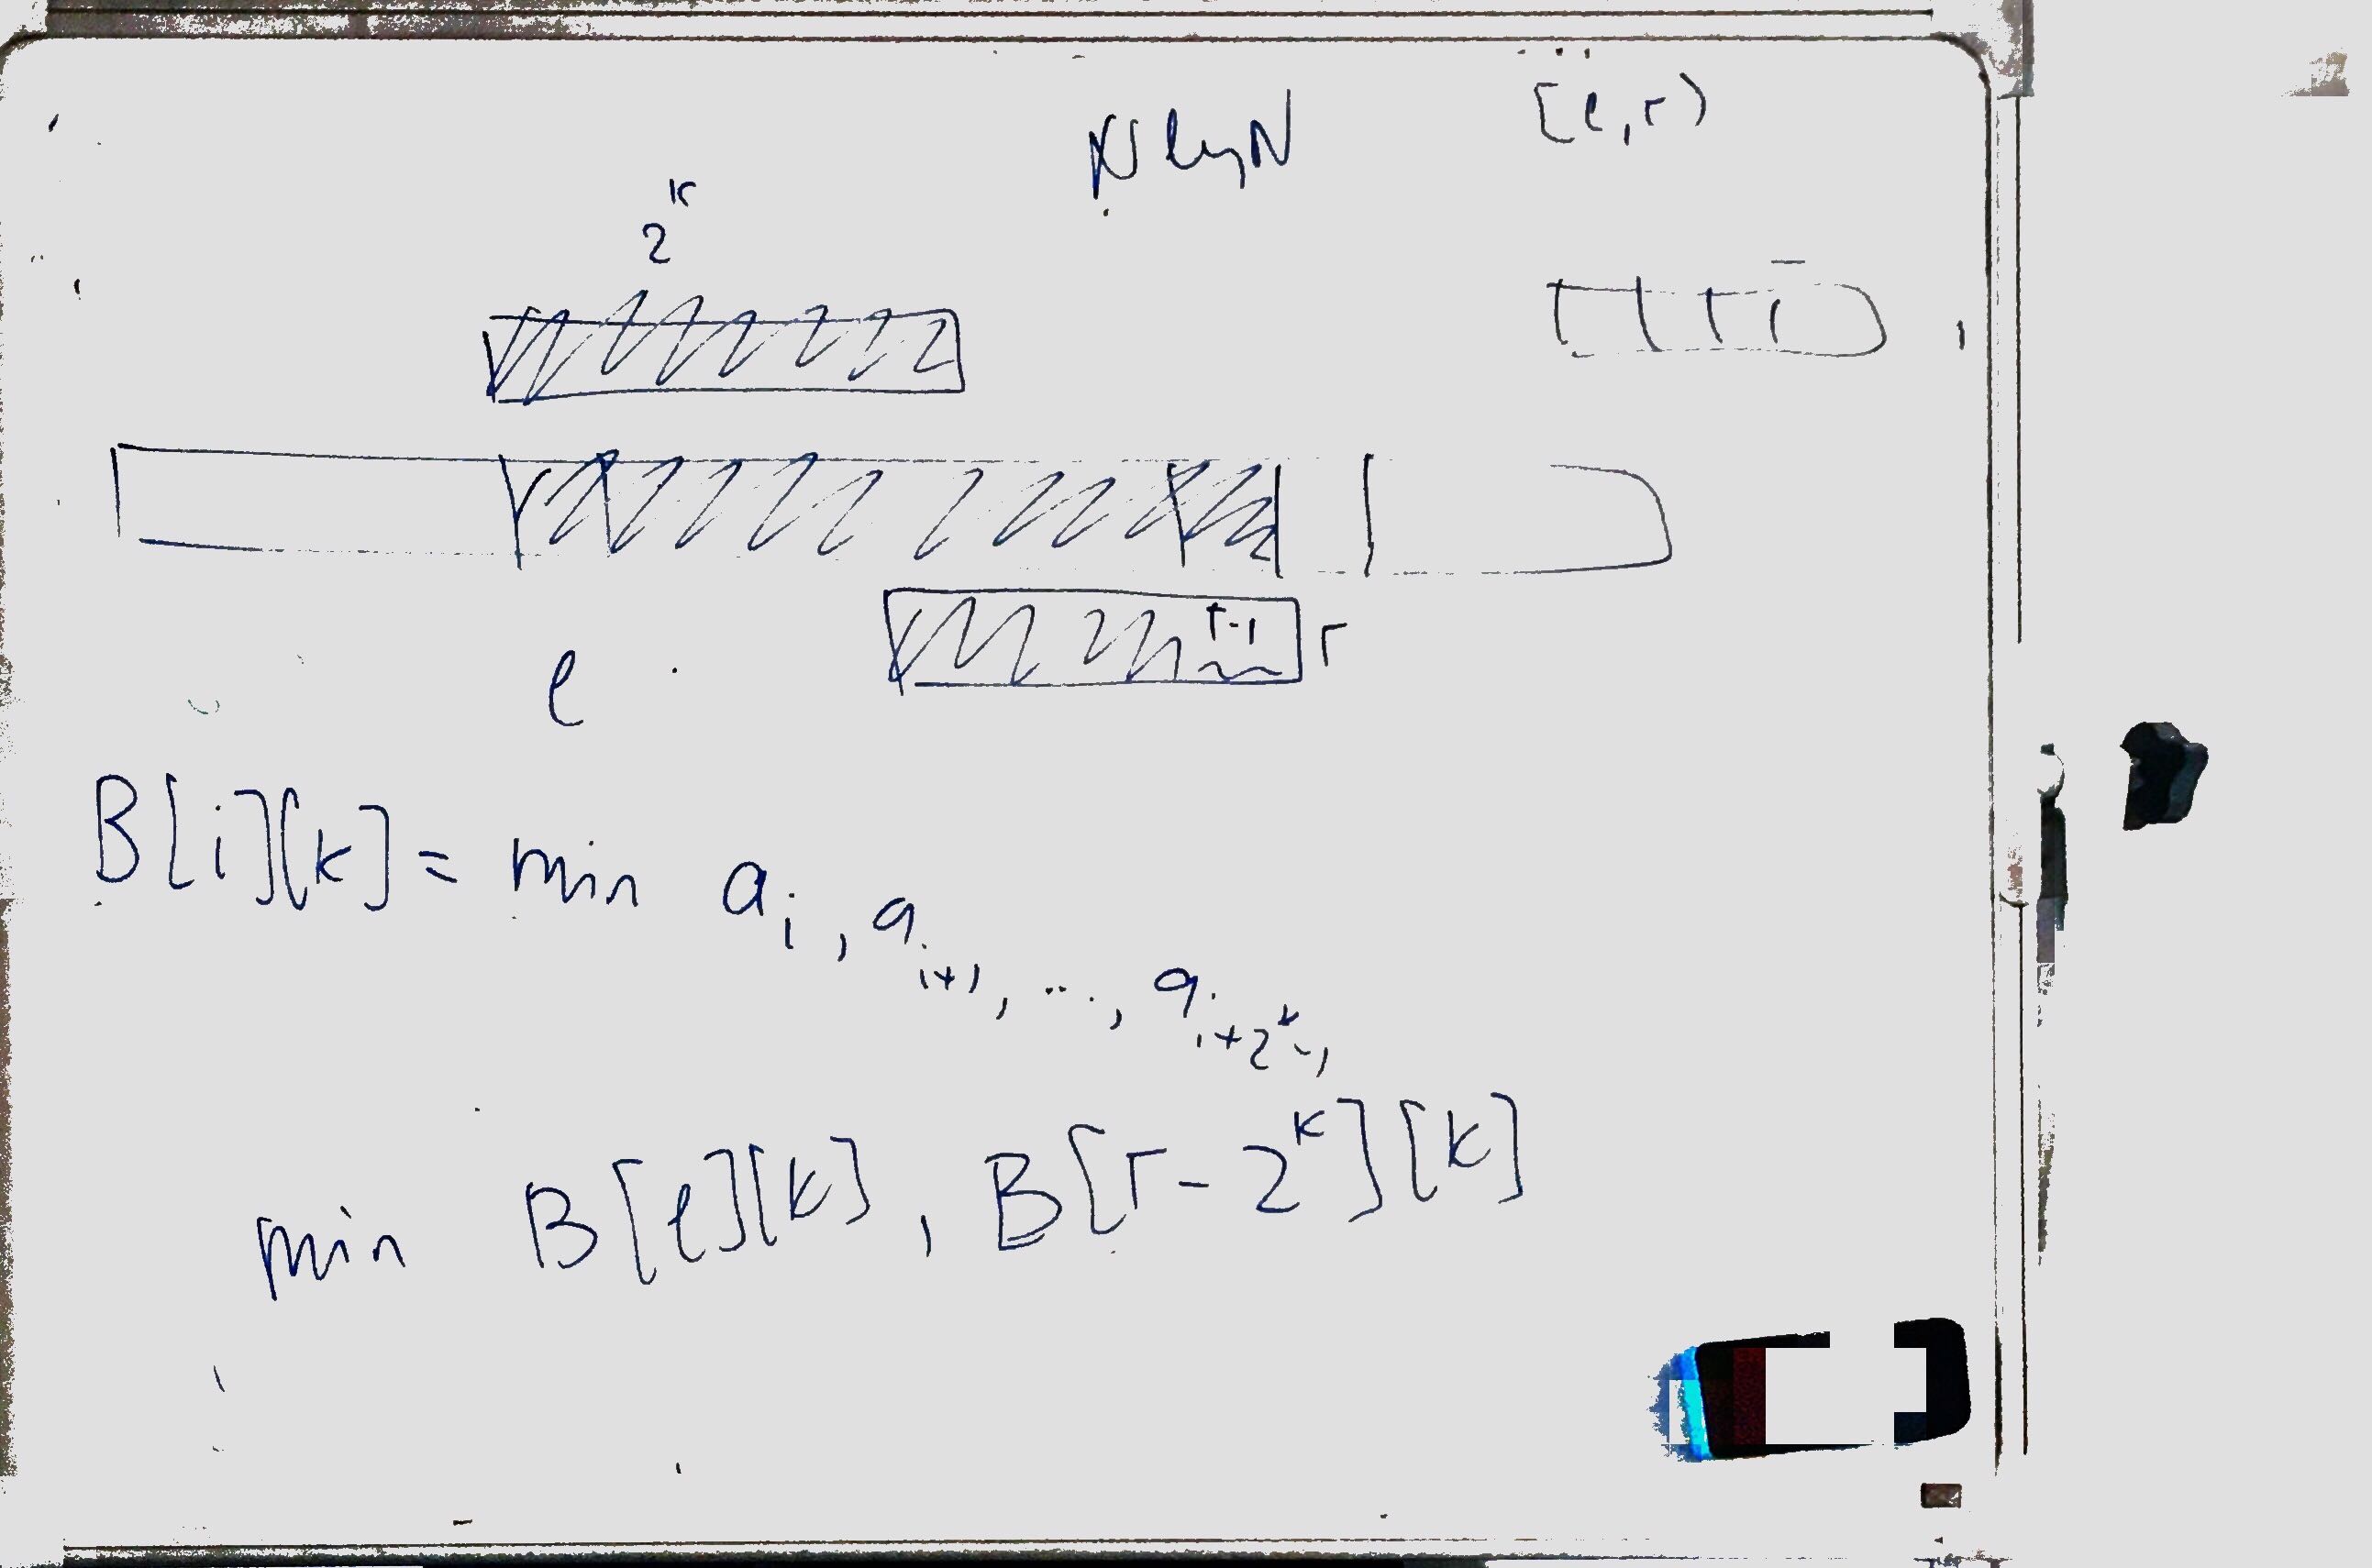 N log N
[l, r)
2^k
r-1
r
l
B[i][k] = min a_i, a_{i+1}, ..., a_{i+2^k-1}
min B[l][k], B[r-2^k][k]